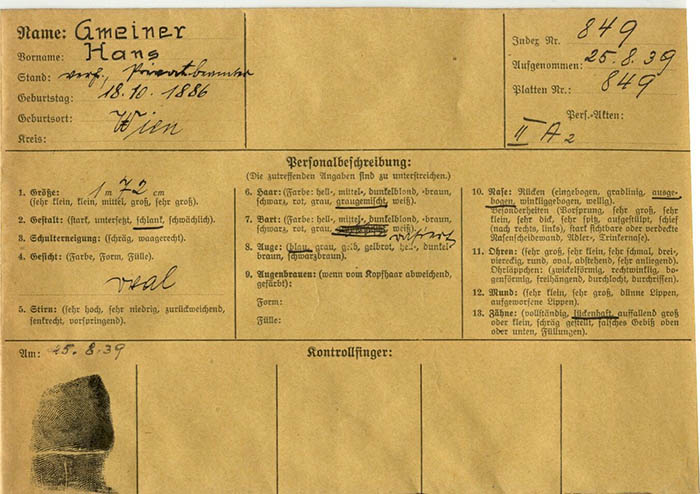 Name: Gmeiner
Vorname: Hans
Stand: verh., Privatbeamter
Geburtstag: 18.10.1886
Geburtsort: Wien
Kreis:
Index Nr. 849
Aufgenommen: 25.8.39
Platten Nr.: 849
Pers.-Akten:
II A 2
Personalbeschreibung:
(Die zutreffenden Angaben sind zu unterstreichen.)
1. Größe: 1 m 72 cm
(sehr klein, klein, mittel, groß, sehr groß).
2. Gestalt: (stark, untersetzt, schlank, schwächlich).
3. Schulterneigung: (schräg, waagerecht).
4. Gesicht: (Farbe, Form, Fülle).
oval
5. Stirn: (sehr hoch, sehr niedrig, zurückweichend,
senkrecht, vorspringend).
6. Haar: (Farbe: hell-, mittel-, dunkelblond, -braun,
schwarz, rot, grau, graugemischt, weiß).
7. Bart: (Farbe: hell-, mittel-, dunkelblond, -braun,
schwarz, rot, grau, weiß). rasiert
8. Auge: (blau, grau, gelb, gelbrot, hell-, dunkel-
braun, schwarzbraun).
9. Augenbrauen: (wenn vom Kopfhaar abweichend,
gefärbt):
Form:
Fülle:
10. Nase: Rücken (eingebogen, gradlinig, ausge-
bogen, winkliggebogen, wellig).
Besonderheiten (Vorsprung, sehr groß, sehr
klein, sehr dick, sehr spitz, aufgestülpt, schief
nach rechts, links), stark sichtbare oder verdeckte
Nasenscheidewand, Adler-, Trinkernase).
11. Ohren: (sehr groß, sehr klein, sehr schmal, drei-,
viereckig, rund, oval, abstehend, sehr anliegend).
Ohrläppchen: (zwickelförmig, rechtwinklig, bo-
genförmig, freihängend, durchlocht, durchrissen).
12. Mund: (sehr klein, sehr groß, dünne Lippen,
aufgeworfene Lippen).
13. Zähne: (vollständig, lückenhaft, auffallend groß
oder klein, schräg gestellt, falsches Gebiß oben
oder unten, Füllungen).
Am: 25.8.39
Kontrollfinger: